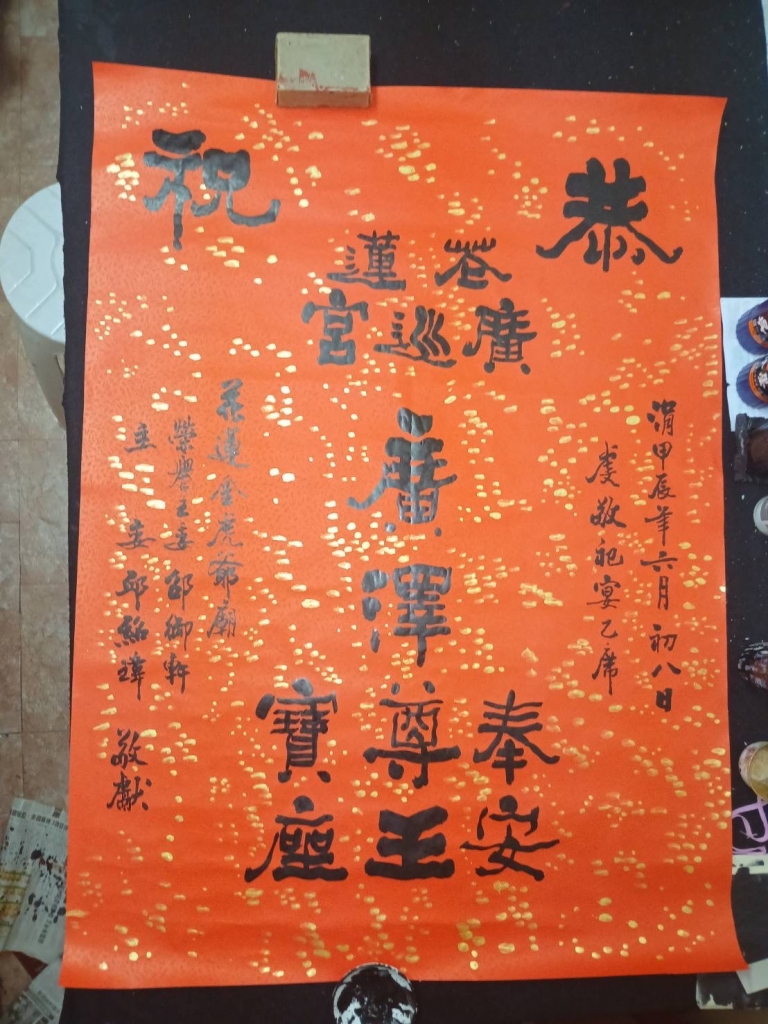 恭祝
花蓮
廣巡宮
涓甲辰年六月初八日
虔敬祀宴乙席
奉安
廣澤尊王
寶座
花蓮金虎爺廟
榮譽主委 邵御軒
主委 邱紹 敬獻